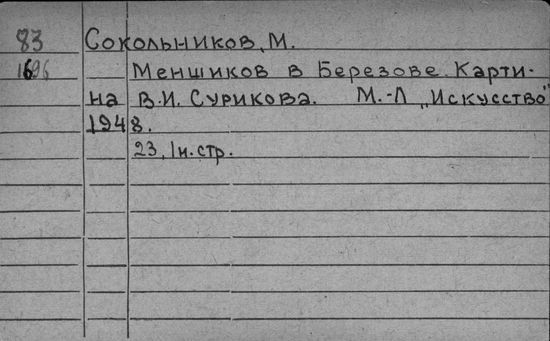 83 Сокольников, М.
1696 Меншиков в Березове. Карти-
на В.И. Сурикова. М.-Л „Искусство"
1948.
23, 1н.стр.